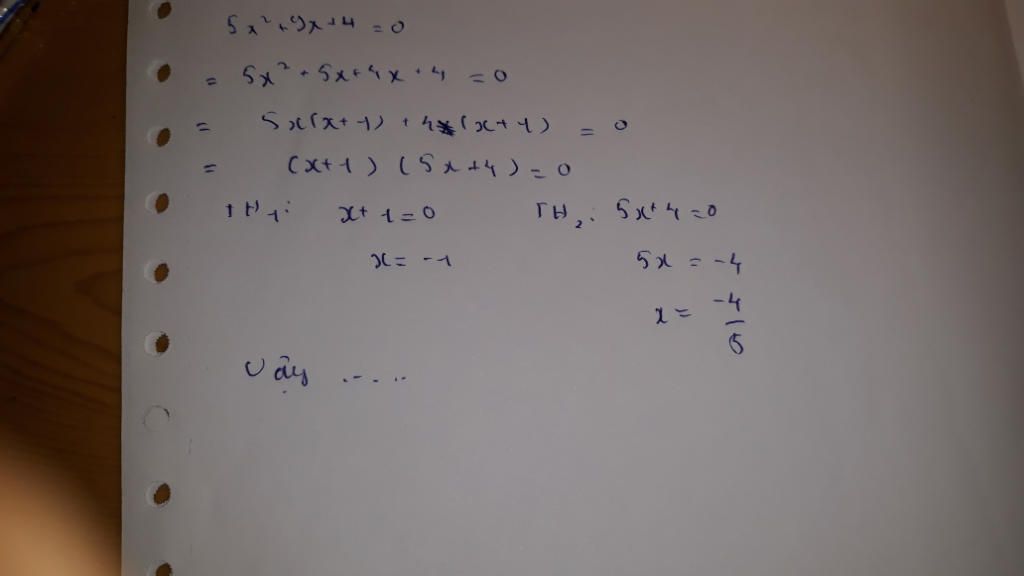 5x² + 9x + 4 = 0
= 5x² + 5x + 4x + 4 = 0
= 5x(x + 1) + 4(x + 1) = 0
= (x + 1) (5x + 4) = 0
TH₁: x + 1 = 0 TH₂: 5x + 4 = 0
x = -1 5x = -4
x = -4/5
Vậy .....